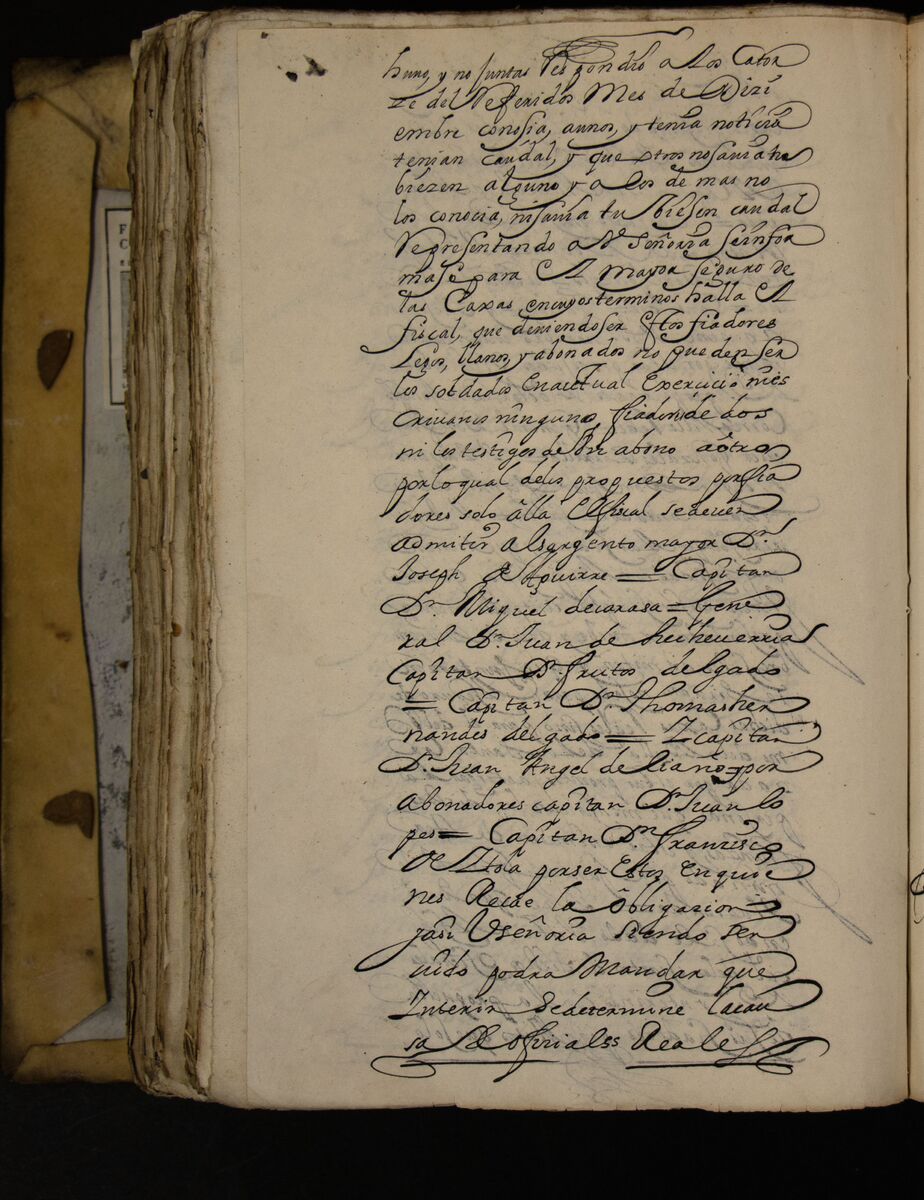 hun, y no juntas Respondio a Los Cator
ze del Referidos Mes de Dizi
embre conosia, aunos, y tenia noticia
tenian caudal, y que otros no savia tu
biezen alguno y a Los de mas no
los conocia, ni savia tu Biesen caudal
Representando a V. Señoria se infor
mase para El mayor seguro de
las Caxas encuyos terminos halla El
fiscal, que deviendo ser Estos fiadores
Legos, llanos, y abonados no pueden ser
los soldados En actual Exercicio ni es
crivanos ninguno, fiadores de dos
ni los testigos de abono a ôtro
por lo qual delos propuestos por fia
dores solo âlla El fiscal se deven
admitir al sargento mayor Dn.
Joseph de Aguirre = Capitan
Dn. Miguel de carasa = Gene
ral Dn. Juan de hecheverria
Capitan Dn. fruto delgado
= Capitan Dn. Thomas her
nandes delgado = Y capitan
Dn. Juan Angel de liaño = y por
Abonadores capitan Dn. Juan lo
pes = Capitan Dn. francisco
de por ser Estos En quie
nes Recae la Obligazion =
y asi Vseñoria siendo ser
uido podra Mandar que
Interin se determine la cau
sa De ofiziales Reales